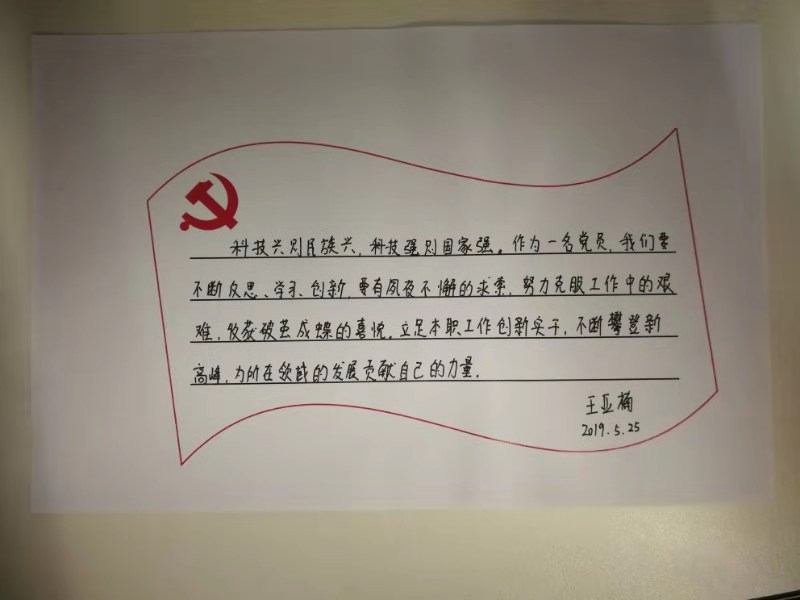 科技兴则民族兴，科技强则国家强。作为一名党员，我们要
不断反思、学习、创新，要有夙夜不懈的求索，努力克服工作中的艰
难，收获破茧成蝶的喜悦。立足本职工作创新实干，不断攀登新
高峰，为所在领域的发展贡献自己的力量。
王亚楠
2019.5.25